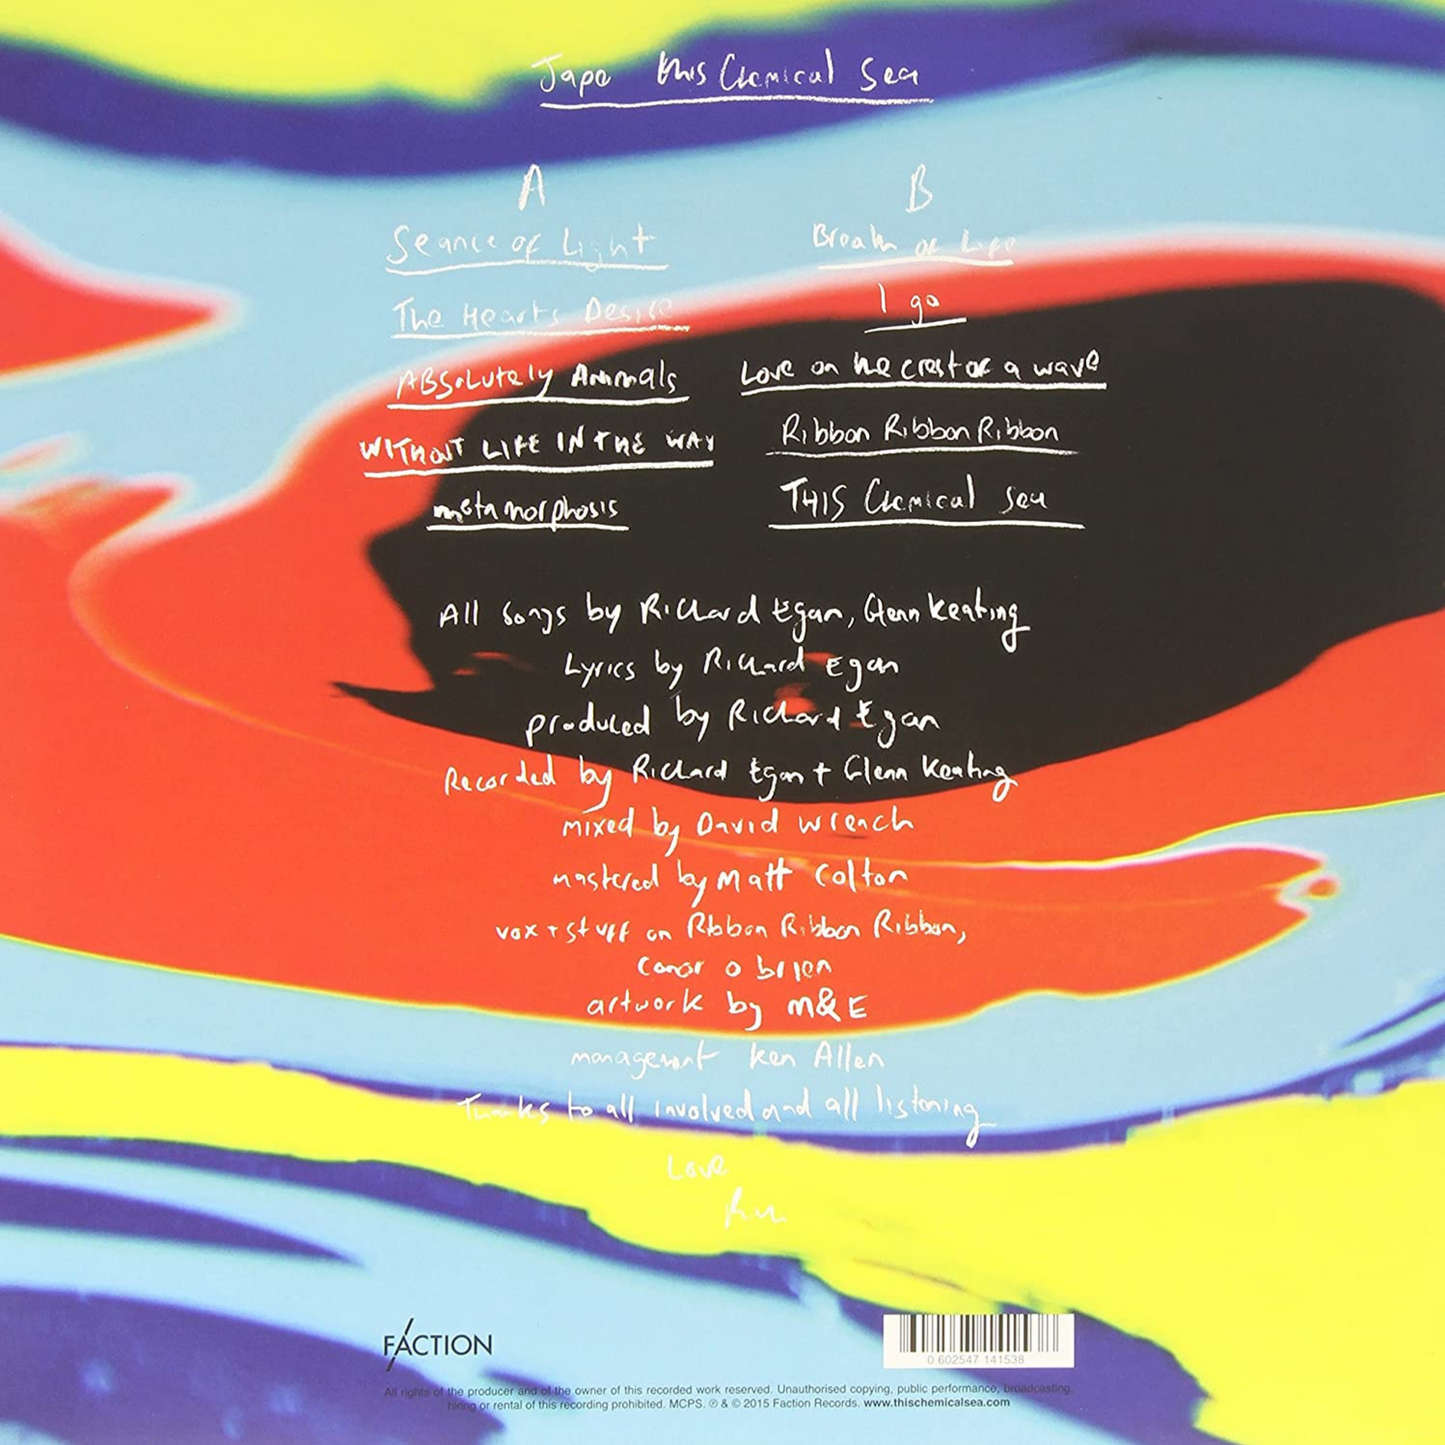 Jape this Chemical Sea
A
Seance of Light
The Hearts Desire
ABSOLUTELY Animals
WITHOUT LIFE IN THE WAY
metamorphosis
B
Breath of Life
I go
Love on the crest of a wave
Ribbon Ribbon Ribbon
THIS Chemical Sea
All songs by Richard Egan, Glenn Keating
Lyrics by Richard Egan
produced by Richard Egan
Recorded by Richard Egan + Glenn Keating
mixed by David Wrench
mastered by Matt Colton
vox + stuff on Ribbon Ribbon Ribbon,
Conor o brien
artwork by M&E
management Ken Allen
Thanks to all involved and all listening
Love
FACTION
0 602547 141538
All rights of the producer and of the owner of this recorded work reserved. Unauthorised copying, public performance, broadcasting,
hiring or rental of this recording prohibited. MCPS. ℗ & © 2015 Faction Records. www.thischemicalsea.com